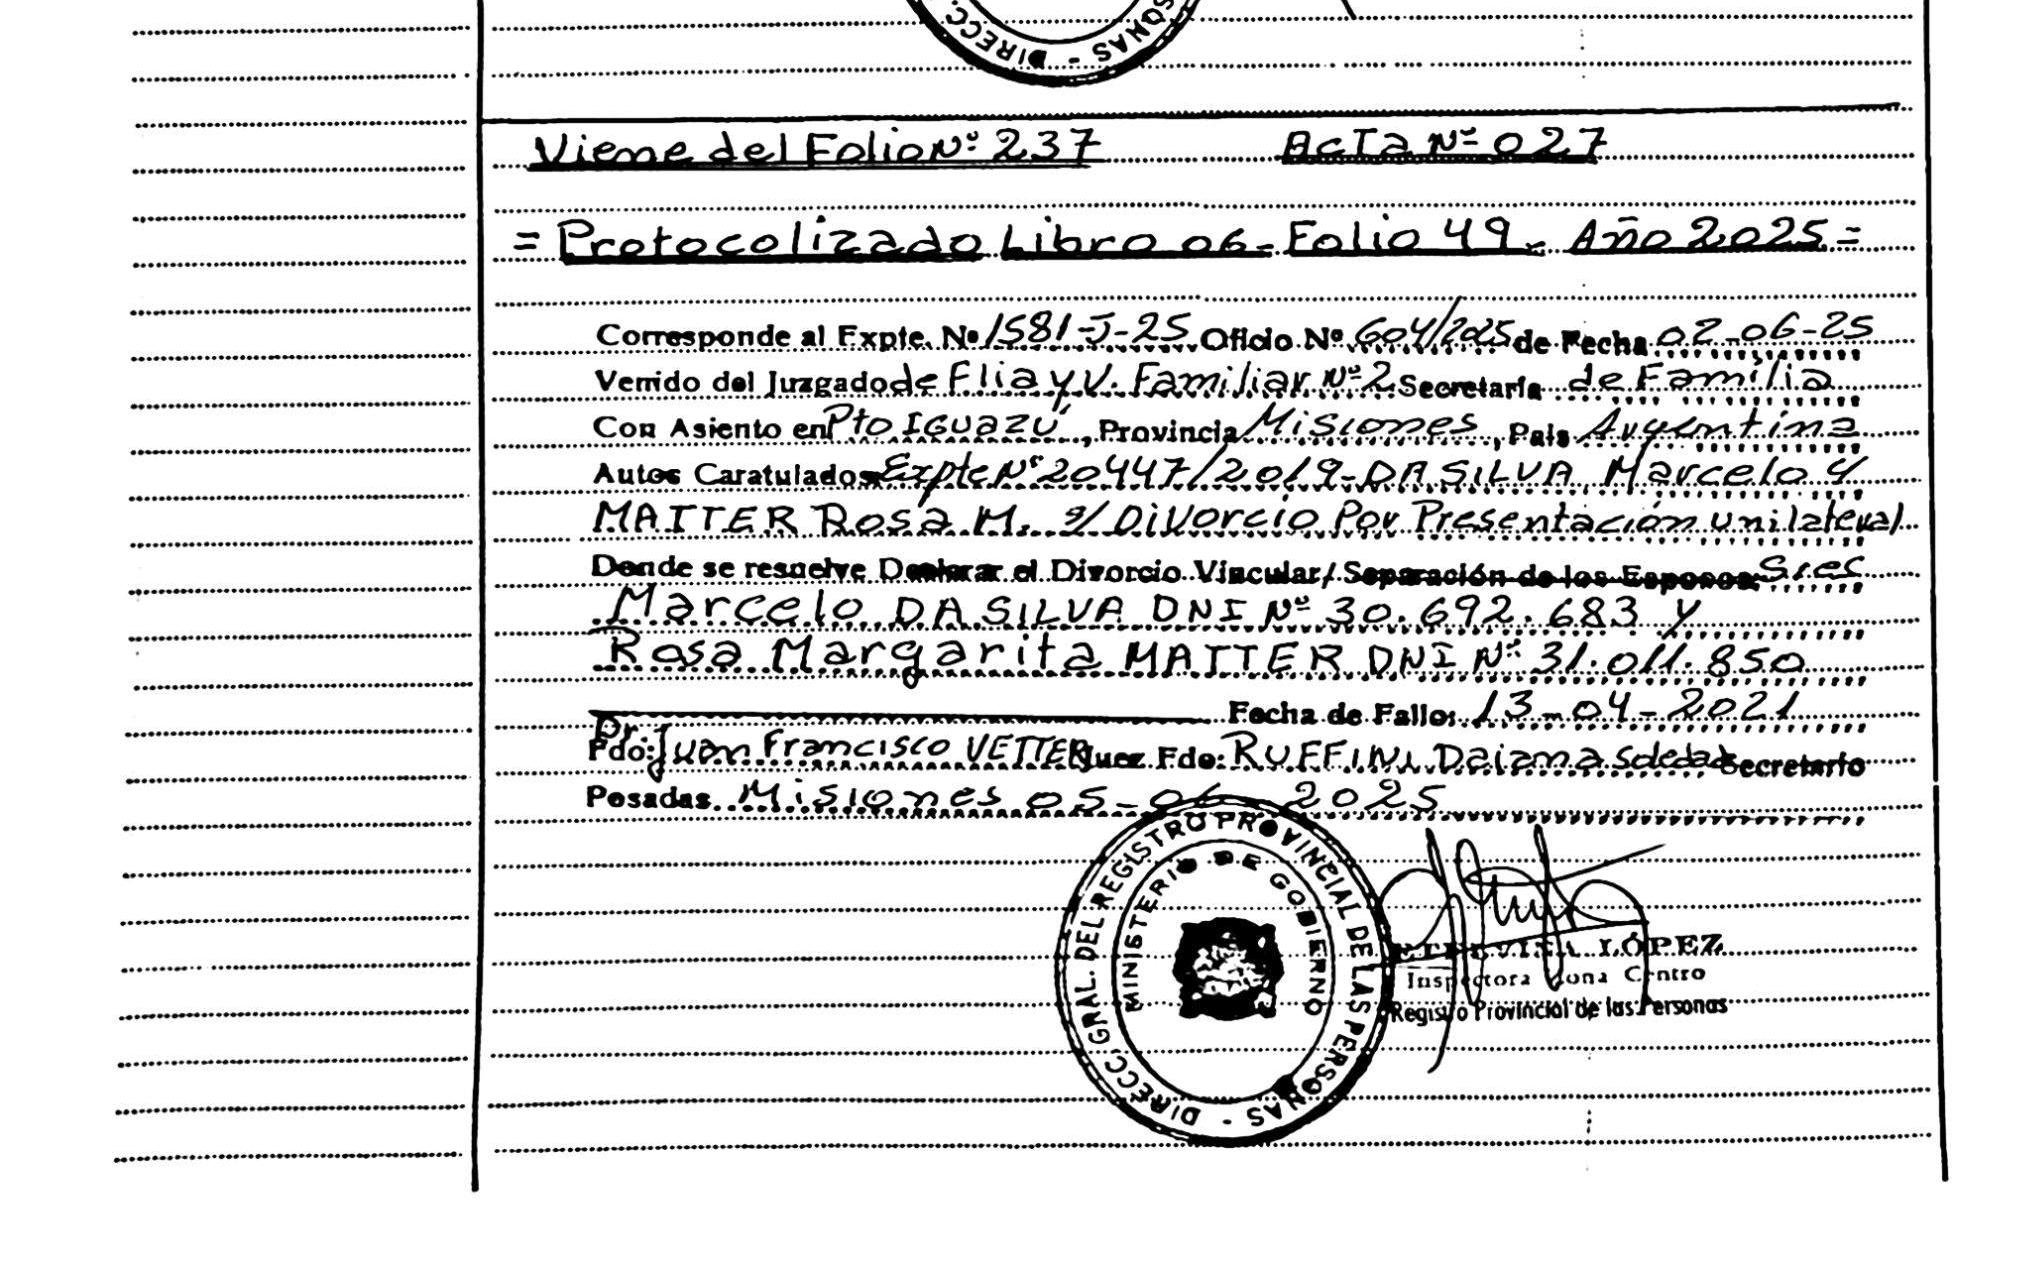 DIRECC. SONAS -
Viene del Folio Nº: 237 Acta Nº 027
= Protocolizado Libro 06 - Folio 49 - Año 2025 =
Corresponde al Expte. Nº 1581-J-25 Oficio Nº 604/2025 de Fecha 02-06-25
Venido del Juzgado de Flia y V. Familiar Nº 2 Secretaría de Familia
Con Asiento en Pto Iguazú, Provincia Misiones, País Argentina
Autos Caratulados Expte Nº 20447/2019 - DA SILVA Marcelo y
MATTER Rosa M. s/ Divorcio Por Presentación unilateral
Donde se resuelve Declarar el Divorcio Vincular/ Separación de los Esposos Sres
Marcelo DA SILVA DNI Nº 30.692.683 y
Rosa Margarita MATTER DNI Nº 31.011.850
Fecha de Fallo: 13-04-2021
Fdo: Dr. Juan Francisco VETTER Juez Fdo: RUFFINI Daiana Soledad Secretario
Posadas Misiones 05-06-2025
DIRECC. GRAL. DEL REGISTRO PROVINCIAL DE LAS PERSONAS -
MINISTERIO DE GOBIERNO
LÓPEZ
Inspectora Zona Centro
Registro Provincial de las Personas